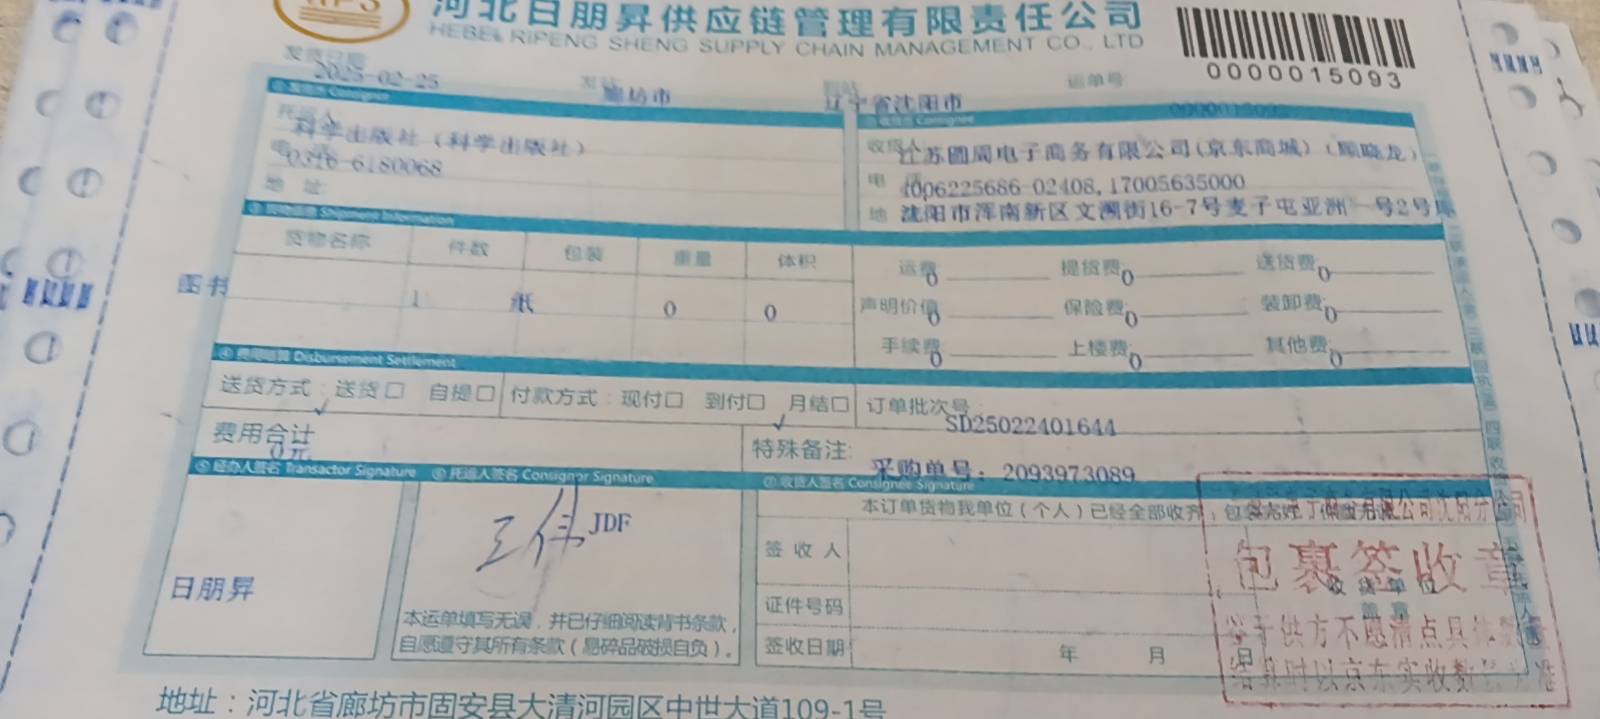 河北日朋昇供应链管理有限责任公司
HEBEI RIPENG SHENG SUPPLY CHAIN MANAGEMENT CO., LTD
0000015093
发货日期 2025-02-25 廊坊市 到站 辽宁省沈阳市 运单号
托运人 科学出版社（科学出版社）
电 0316-6180068
地 址
Consignee
收货人 江苏圆周电子商务有限公司(京东商城)（顾晓龙）
电 4006225686-02408,17005635000
地 沈阳市浑南新区文溯街16-7号麦子屯亚洲一号2号库
Shipment Information
货物名称 件数 包装 重量 体积
图书 1 纸 0 0
运费 0 提货费 0 送货费 0
声明价值 0 保险费 0 装卸费 0
手续费 0 上楼费 0 其他费 0
④ 费用结算 Disbursement Settlement
送货方式：送货□ ✓ 自提□ 付款方式：现付□ 到付□ 月结□ ✓ 订单批次号 SD25022401644
费用合计 0元
特殊备注: 采购单号：2093973089
⑤ 经办人签名 Transactor Signature ⑥ 托运人签名 Consignor Signature ⑦ 收货人签名 Consignee Signature
日朋昇
王伟 JDF
本运单填写无误，并已仔细阅读背书条款，
自愿遵守其所有条款（易碎品破损自负）。
本订单货物我单位（个人）已经全部收齐，包装完好
签 收 人
证件号码
签收日期 年 月 日
收 货 单 位
盖 章
包裹签收章
鉴于供方不愿清点具体数量
结算时以京东实收数量为准
地址：河北省廊坊市固安县大清河园区中世大道109-1号